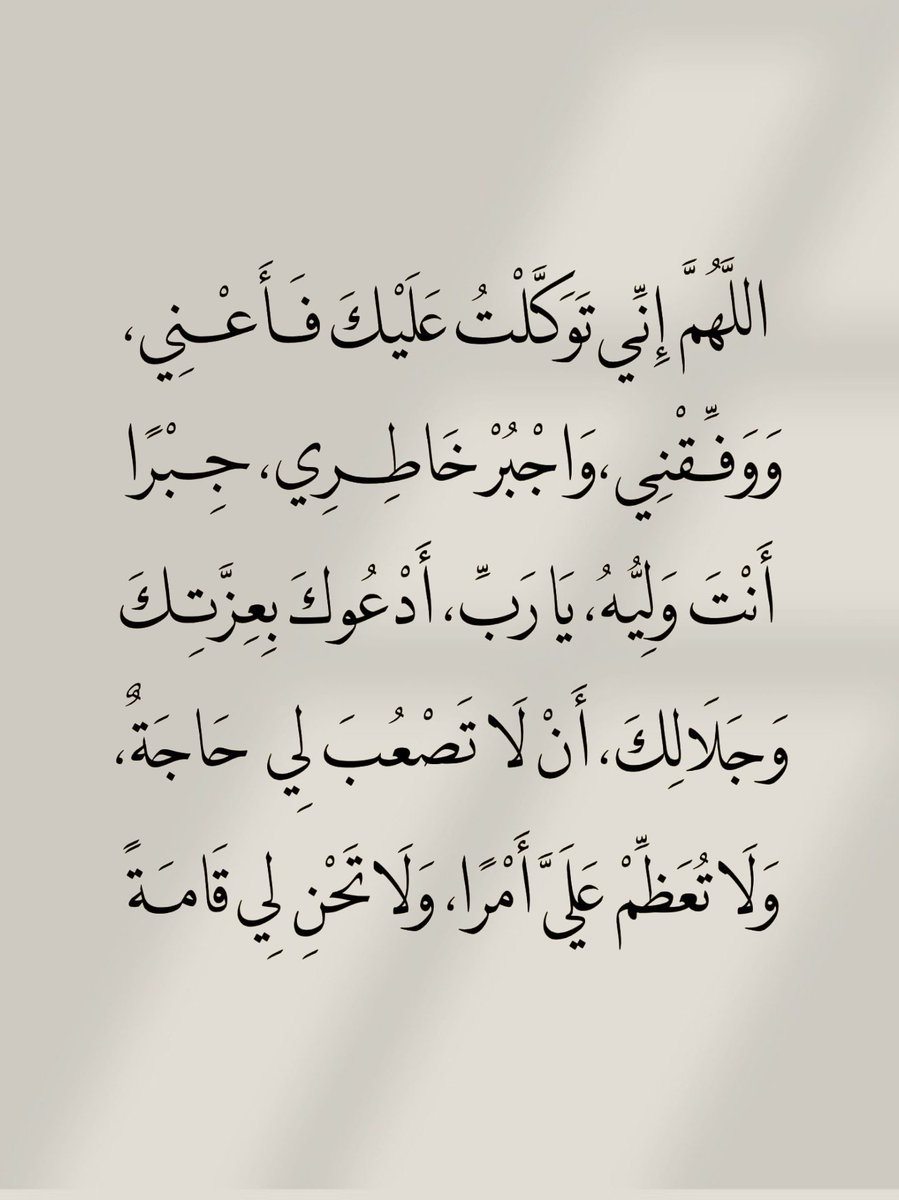 اللَّهُمَّ إِنِّي تَوَكَّلْتُ عَلَيْكَ فَأَعْنِي،
وَوَفِّقْنِي، وَاجْبُرْ خَاطِرِي، جِبْرًا
أَنْتَ وَلِيُّهُ، يَا رَبِّ، أَدْعُوكَ بِعِزَّتِكَ
وَجَلَالِكَ، أَنْ لَا تَصْعُبَ لِي حَاجَةٌ،
وَلَا تُعَظِّمْ عَلَيَّ أَمْرًا، وَلَا تَحْنِ لِي قَامَةً